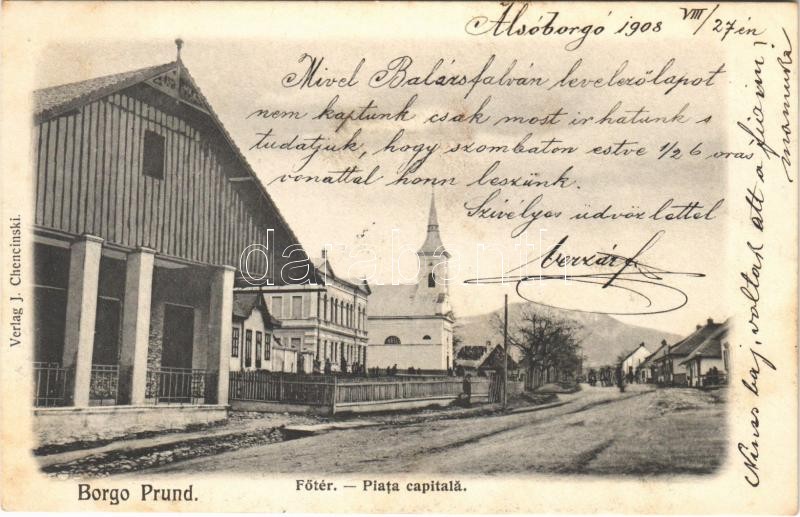 Alsóborgó 1908 VIII/27én
Mivel Balázsfalván levelezőlapot
nem kaptunk csak most irhatunk s
tudatjuk, hogy szombaton estve 1/2 6 oras
vonattal honn leszünk.
Szivélyes üdvözlettel
Nincs baj, voltak itt a fiaim!
mamuka
Verlag J. Chencinski.
darabanth
Borgo Prund.
Főtér. — Piața capitală.